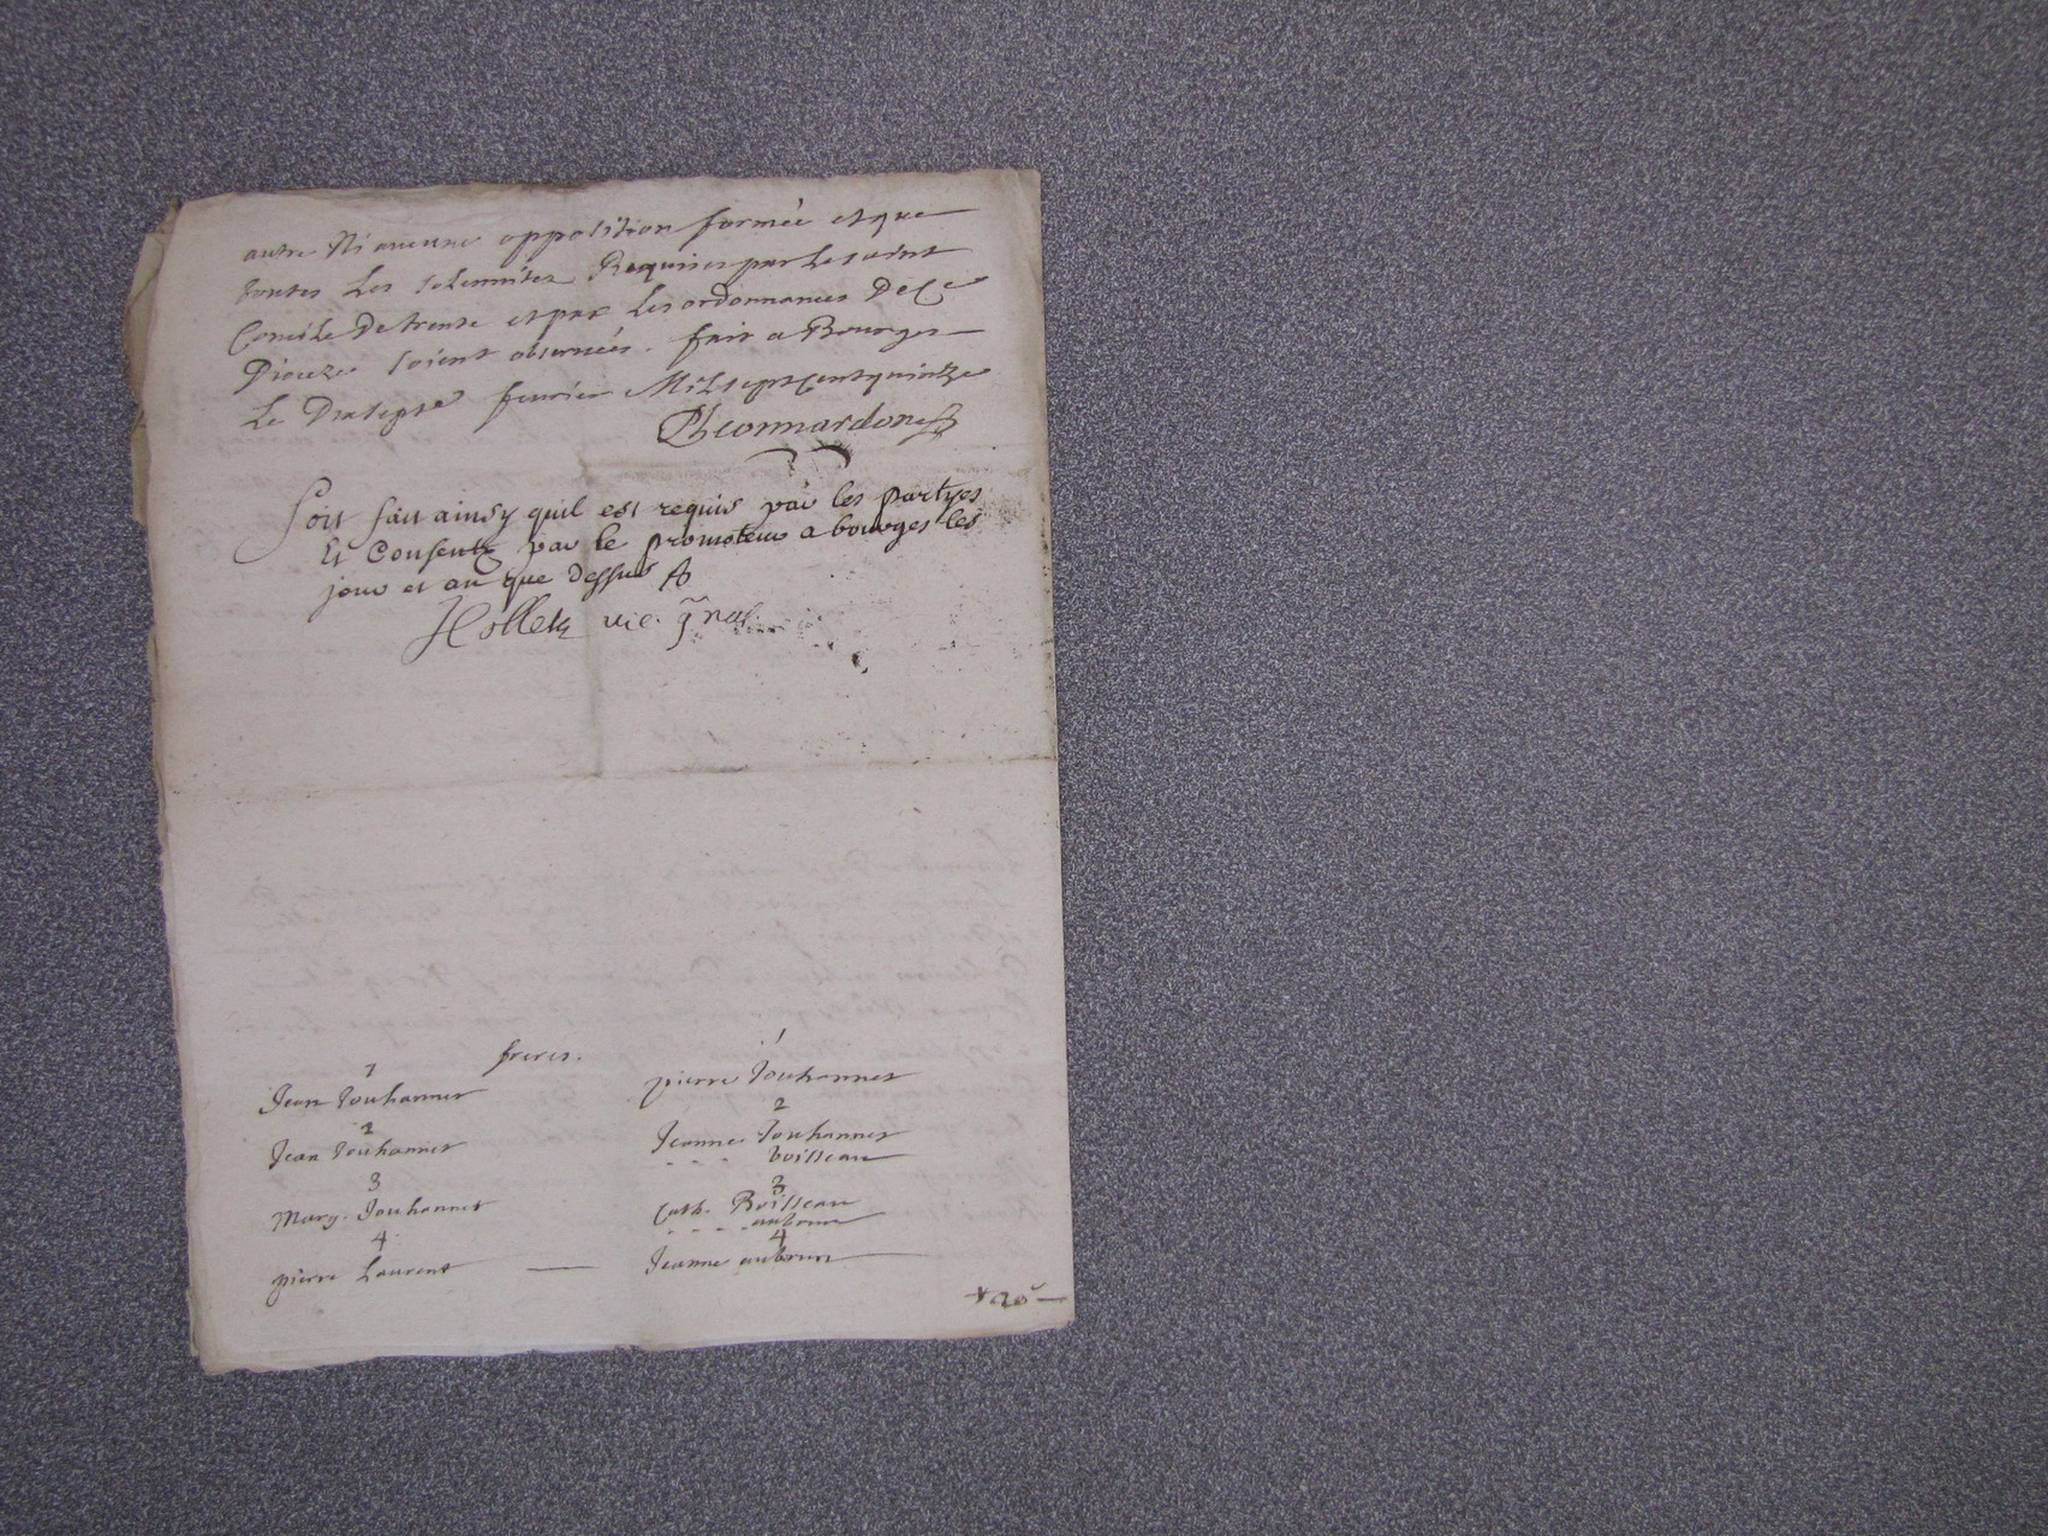 autre Ni aucune opposition formée et que
toutes Les solemnitez Requises par Le saint
Concile De trente et par Les ordonnances De Ce
Dioceze soient observées. fait a Bourges
Le Dixsepte fevrier Mil sept Cent quinze
Soit fait ainsy quil est requis par les partyes
Et Consenty par le promoteur a bourges les
jour et an que dessus
vic. gnal.
freres.
1 1
Jean Jouhannet pierre Jouhannet
2 2
Jean Jouhannet Jeanne Jouhannet
- - - boisseau
3 3
Marg. Jouhannet Cath. Boisseau
- - - - aubrun
4 4
pierre Laurent — Jeanne aubrun